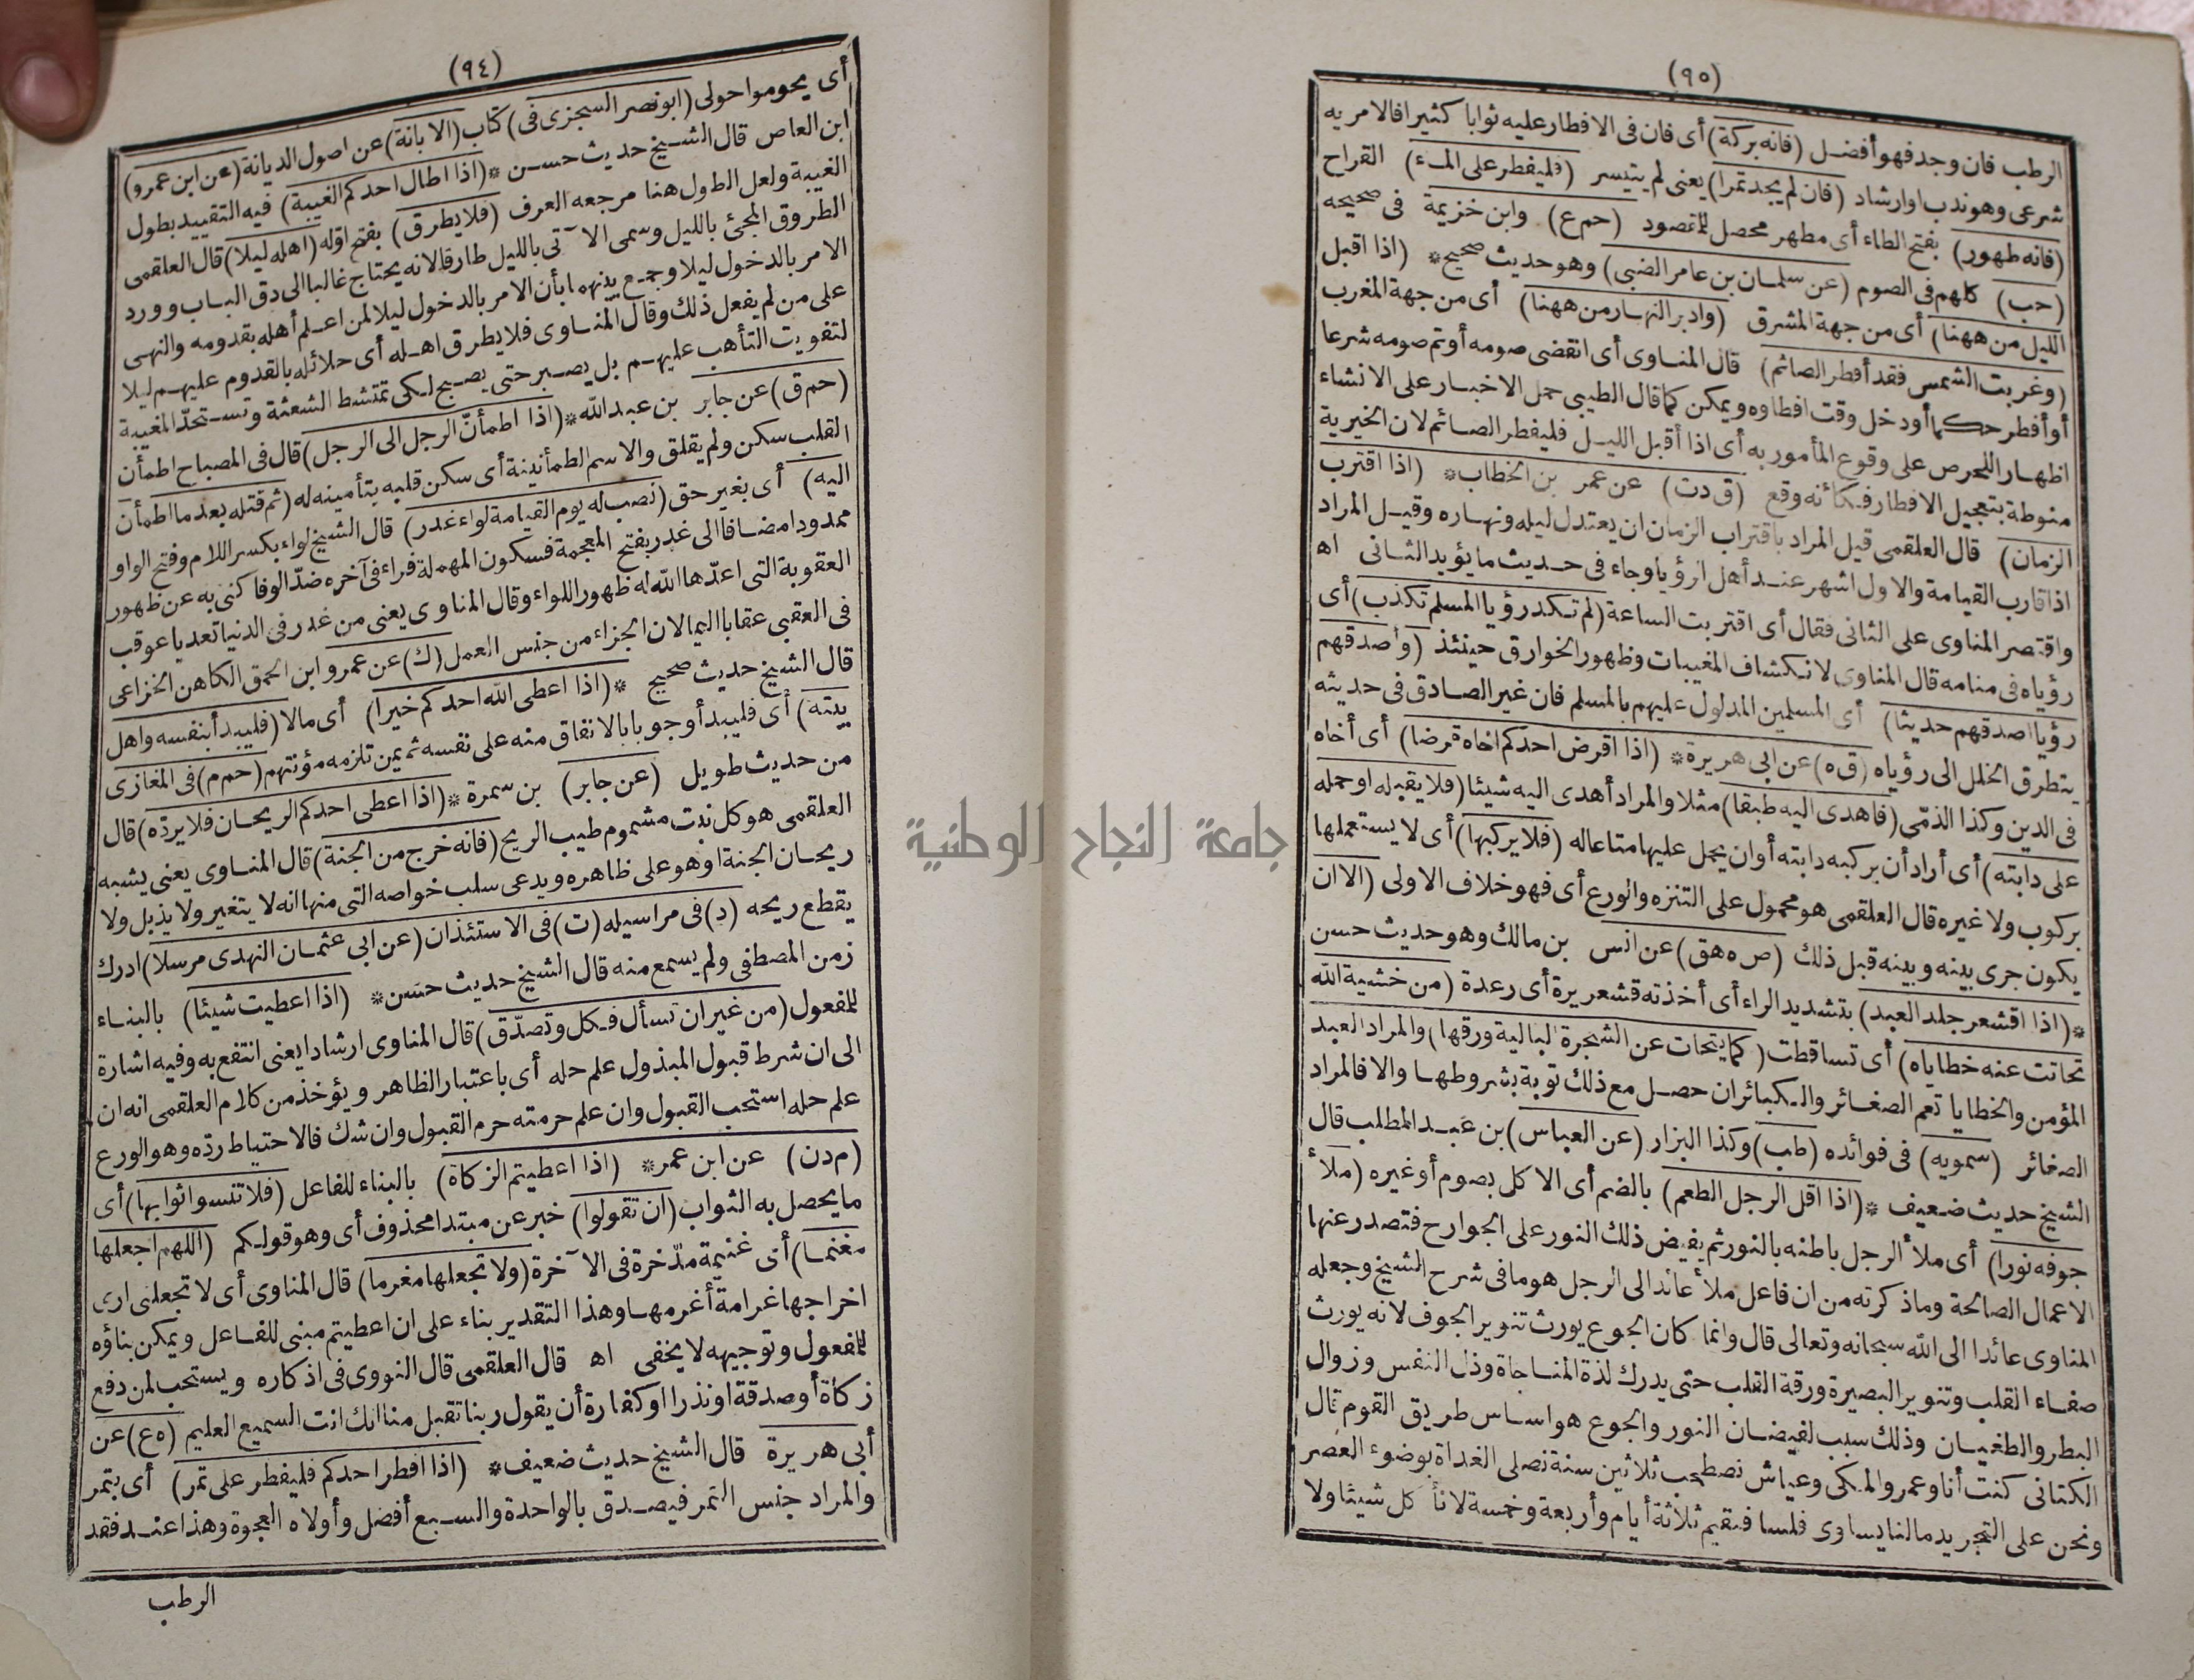 (٩٤)
أى يحوموا حولى (ابو نصر السجزى فى) كتاب (الابانة) عن اصول الديانة (عن ابن عمرو)
ابن العاص قال الشيخ حديث حسن * (اذا اطال احدكم الغيبة) فيه التقييد بطول
الغيبة ولعل الطول هنا مرجعه العرف (فلا يطرق) بفتح اوله (اهله ليلا) قال العلقمى
الطروق المجئ بالليل وسمى الآتى بالليل طارقا لانه يحتاج غالبا الى دق الباب وورد
الامر بالدخول ليلا وجمع بينهما بأن الامر بالدخول ليلا لمن اعلم أهله بقدومه والنهى
على من لم يفعل ذلك وقال المناوى فلا يطرق اهله أى حلائله بالقدوم عليهم ليلا
لتفويت التأهب عليهم بل يصبر حتى يصبح لكى تمتشط الشعثة وتستحدّ المغيبة
(حم ق) عن جابر بن عبد الله * (اذا اطمأنّ الرجل الى الرجل) قال فى المصباح اطمأن
القلب سكن ولم يقلق والاسم الطمأنينة أى سكن قلبه بتأمينه له (ثم قتله بعد ما اطمأن
اليه) أى بغير حق (نصب له يوم القيامة لواء غدر) قال الشيخ لواء بكسر اللام وفتح الواو
ممدودا مضافا الى غدر بفتح المعجمة فسكون المهملة فراء فى آخره ضدّ الوفا كنى به عن ظهور
العقوبة التى اعدّها الله له ظهور اللواء وقال المناوى يعنى من غدر فى الدنيا تعديا عوقب
فى العقبى عقابا اليما لان الجزاء من جنس العمل (ك) عن عمرو ابن الحمق الكاهن الخزاعى
قال الشيخ حديث صحيح * (اذا اعطى الله احدكم خيرا) أى مالا (فليبدأ بنفسه واهل
بيته) أى فليبدأ وجوبا بالانفاق منه على نفسه ثم بمن تلزمه مؤنتهم (حم م) فى المغازى
من حديث طويل (عن جابر) بن سمرة * (اذا اعطى احدكم الريحان فلا يردّه) قال
العلقمى هو كل نبت مشموم طيب الريح (فانه خرج من الجنة) قال المناوى يعنى يشبه
ريحان الجنة او هو على ظاهره ويدعى سلب خواصه التى منها انه لا يتغير ولا يذبل ولا
يقطع ريحه (د) فى مراسيله (ت) فى الاستئذان (عن ابى عثمان النهدى مرسلا) ادرك
زمن المصطفى ولم يسمع منه قال الشيخ حديث حسن * (اذا اعطيت شيئا) بالبناء
للمفعول (من غير ان تسأل فكل وتصدّق) قال المناوى ارشادا يعنى انتفع به وفيه اشارة
الى ان شرط قبول المبذول علم حله أى باعتبار الظاهر ويؤخذ من كلام العلقمى انه ان
علم حله استحب القبول وان علم حرمته حرم القبول وان شك فالاحتياط ردّه وهو الورع
(م د ن) عن ابن عمر * (اذا اعطيتم الزكاة) بالبناء للفاعل (فلا تنسوا ثوابها) أى
ما يحصل به الثواب (ان تقولوا) خبر عن مبتدا محذوف أى وهو قولكم (اللهم اجعلها
مغنما) أى غنيمة مدّخرة فى الآخرة (ولا تجعلها مغرما) قال المناوى أى لا تجعلنى ارى
اخراجها غرامة أغرمها وهذا التقدير بناء على ان اعطيتم مبنى للفاعل ويمكن بناؤه
للمفعول وتوجيهه لا يخفى اه قال العلقمى قال النووى فى اذكاره ويستحب لمن دفع
زكاة أو صدقة او نذرا او كفارة أن يقول ربنا تقبل منا انك انت السميع العليم (ه ع) عن
أبى هريرة قال الشيخ حديث ضعيف * (اذا افطر احدكم فليفطر على تمر) أى بتمر
والمراد جنس التمر فيصدق بالواحدة والسبع أفضل وأولاه العجوة وهذا عند فقد
الرطب
(٩٥)
الرطب فان وجد فهو أفضل (فانه بركة) أى فان فى الافطار عليه ثوابا كثيرا فالامر به
شرعى وهو ندب او ارشاد (فان لم يجد تمرا) يعنى لم يتيسر (فليفطر على الماء) القراح
(فانه طهور) بفتح الطاء أى مطهر محصل للمقصود (حم ع) وابن خزيمة فى صحيحه
(حب) كلهم فى الصوم (عن سلمان بن عامر الضبى) وهو حديث صحيح * (اذا اقبل
الليل من ههنا) أى من جهة المشرق (وادبر النهار من ههنا) أى من جهة المغرب
(وغربت الشمس فقد أفطر الصائم) قال المناوى أى انقضى صومه أو تم صومه شرعا
أو أفطر حكما أو دخل وقت افطاره ويمكن كما قال الطيبى حمل الاخبار على الانشاء
اظهار اللحرص على وقوع المأمور به أى اذا أقبل الليل فليفطر الصائم لان الخيرية
منوطة بتعجيل الافطار فكأنه وقع (ق د ت) عن عمر بن الخطاب * (اذا اقترب
الزمان) قال العلقمى قيل المراد باقتراب الزمان ان يعتدل ليله ونهاره وقيل المراد
اذا قارب القيامة والاول اشهر عند أهل الرؤيا وجاء فى حديث ما يؤيد الثانى اه
واقتصر المناوى على الثانى فقال أى اقتربت الساعة (لم تكد رؤيا المسلم تكذب) أى
رؤياه فى منامه قال المناوى لانكشاف المغيبات وظهور الخوارق حينئذ (وأصدقهم
رؤيا اصدقهم حديثا) أى المسلمين المدلول عليهم بالمسلم فان غير الصادق فى حديثه
يتطرق الخلل الى رؤياه (ق ه) عن ابى هريرة * (اذا اقرض احدكم اخاه قرضا) أى أخاه
فى الدين وكذا الذمّى (فاهدى اليه طبقا) مثلا والمراد أهدى اليه شيئا (فلا يقبله او حمله
على دابته) أى أراد أن يركبه دابته أو ان يحمل عليها متاعا له (فلا يركبها) أى لا يستعملها
بركوب ولا غيره قال العلقمى هو محمول على التنزه والورع أى فهو خلاف الاولى (الا ان
يكون جرى بينه وبينه قبل ذلك (ص ه هق) عن انس بن مالك وهو حديث حسن
* (اذا اقشعر جلد العبد) بتشديد الراء أى أخذته قشعريرة أى رعدة (من خشية الله
تحاتت عنه خطاياه) أى تساقطت (كما يتحات عن الشجرة البالية ورقها) والمراد العبد
المؤمن والخطايا تعم الصغائر والكبائر ان حصل مع ذلك توبة بشروطها والا فالمراد
الصغائر (سمويه) فى فوائده (طب) وكذا البزار (عن العباس) بن عبد المطلب قال
الشيخ حديث ضعيف * (اذا اقل الرجل الطعم) بالضم أى الاكل بصوم أو غيره (ملأ
جوفه نورا) أى ملأ الرجل باطنه بالنور ثم يفيض ذلك النور على الجوارح فتصدر عنها
الاعمال الصالحة وما ذكرته من ان فاعل ملأ عائد الى الرجل هو ما فى شرح الشيخ وجعله
المناوى عائدا الى الله سبحانه وتعالى قال وانما كان الجوع يورث تنوير الجوف لانه يورث
صفاء القلب وتنوير البصيرة ورقة القلب حتى يدرك لذة المناجاة وذل النفس وزوال
البطر والطغيان وذلك سبب لفيضان النور والجوع هو اساس طريق القوم قال
الكتانى كنت أنا وعمرو المكى وعياش نصطحب ثلاثين سنة نصلى الغداة بوضوء العصر
ونحن على التجريد مالنا يساوى فلسا فنقيم ثلاثة أيام وأربعة وخمسة لا نأكل شيئا ولا
جامعة النجاح الوطنية